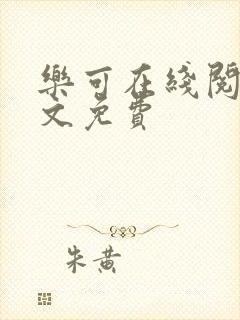 樂可在綫閱
文免費
朱黄